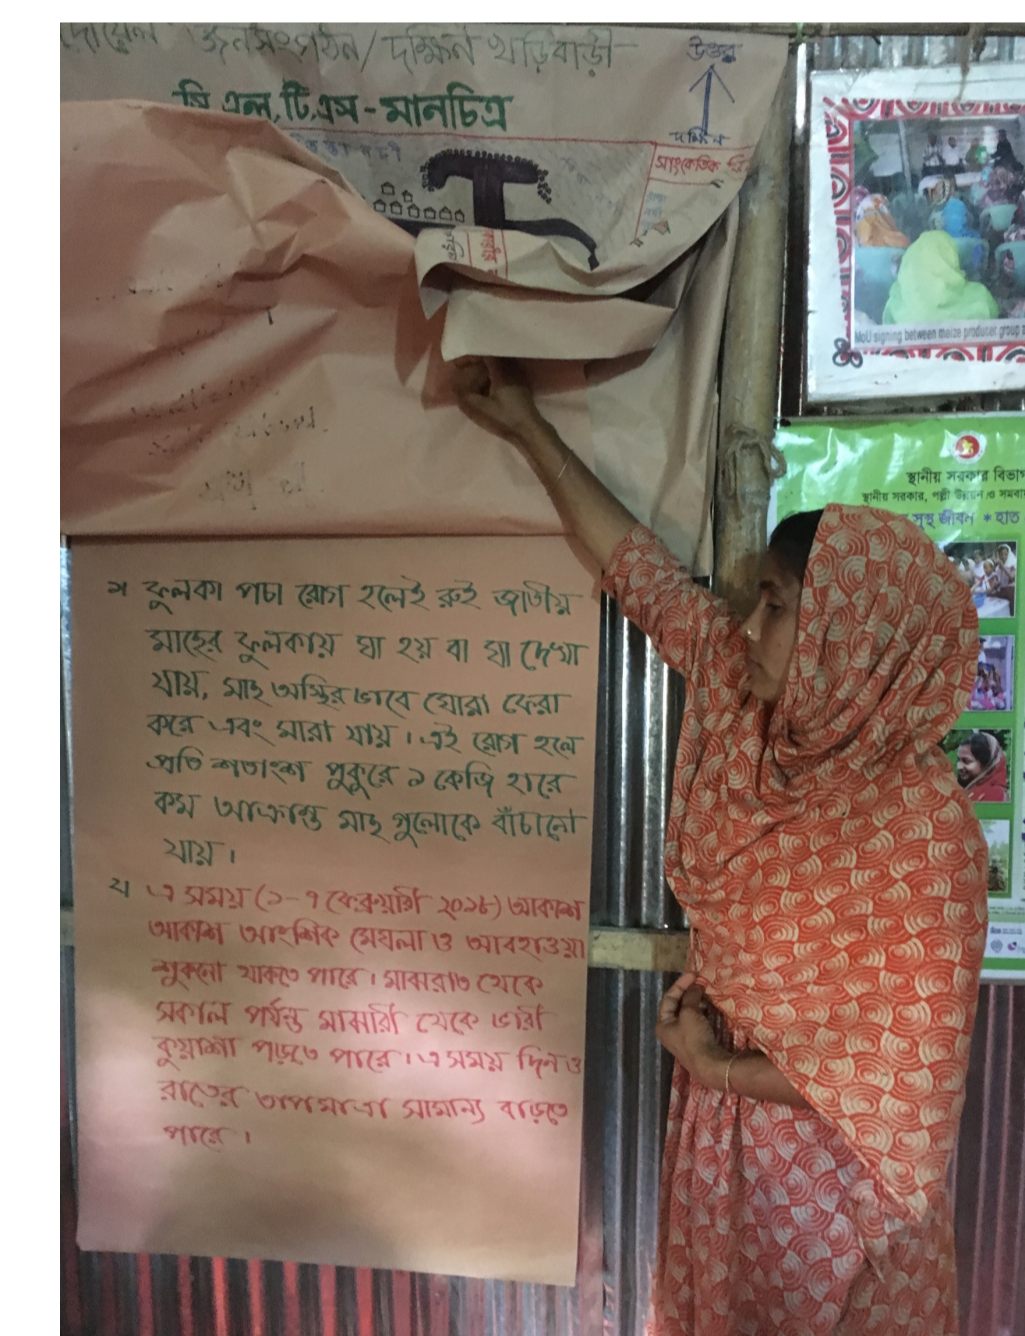 দোয়েল জনসংগঠন/দক্ষিন খড়িবাড়ী
সি.এল.টি.এস-মানচিত্র
উত্তর
দক্ষিন
সাংকেতিক
MoU signing between maize producer group
স্থানীয় সরকার বিভাগ
স্থানীয় সরকার, পল্লী উন্নয়ন ও সমবায়
সুস্থ জীবন * হাত
ফুলকা পচা রোগ হলেই রুই জাতীয়
মাছের ফুলকায় ঘা হয় বা ঘা দেখা
যায়, মাছ অস্থির ভাবে ঘোরা ফেরা
করে এবং মারা যায়। এই রোগ হলে
প্রতি শতাংশ পুকুরে ১ কেজি হারে
কম আক্রান্ত মাছ গুলোকে বাঁচানো
যায়।
এ সময় (১-৭ ফেব্রুয়ারী ২০১৮) আকাশ
আকাশ আংশিক মেঘলা ও আবহাওয়া
শুকনো থাকতে পারে। মাঝরাত থেকে
সকাল পর্যন্ত মাঝারি থেকে ভারী
কুয়াশা পড়তে পারে। এ সময় দিন ও
রাতের তাপমাত্রা সামান্য বাড়তে
পারে।